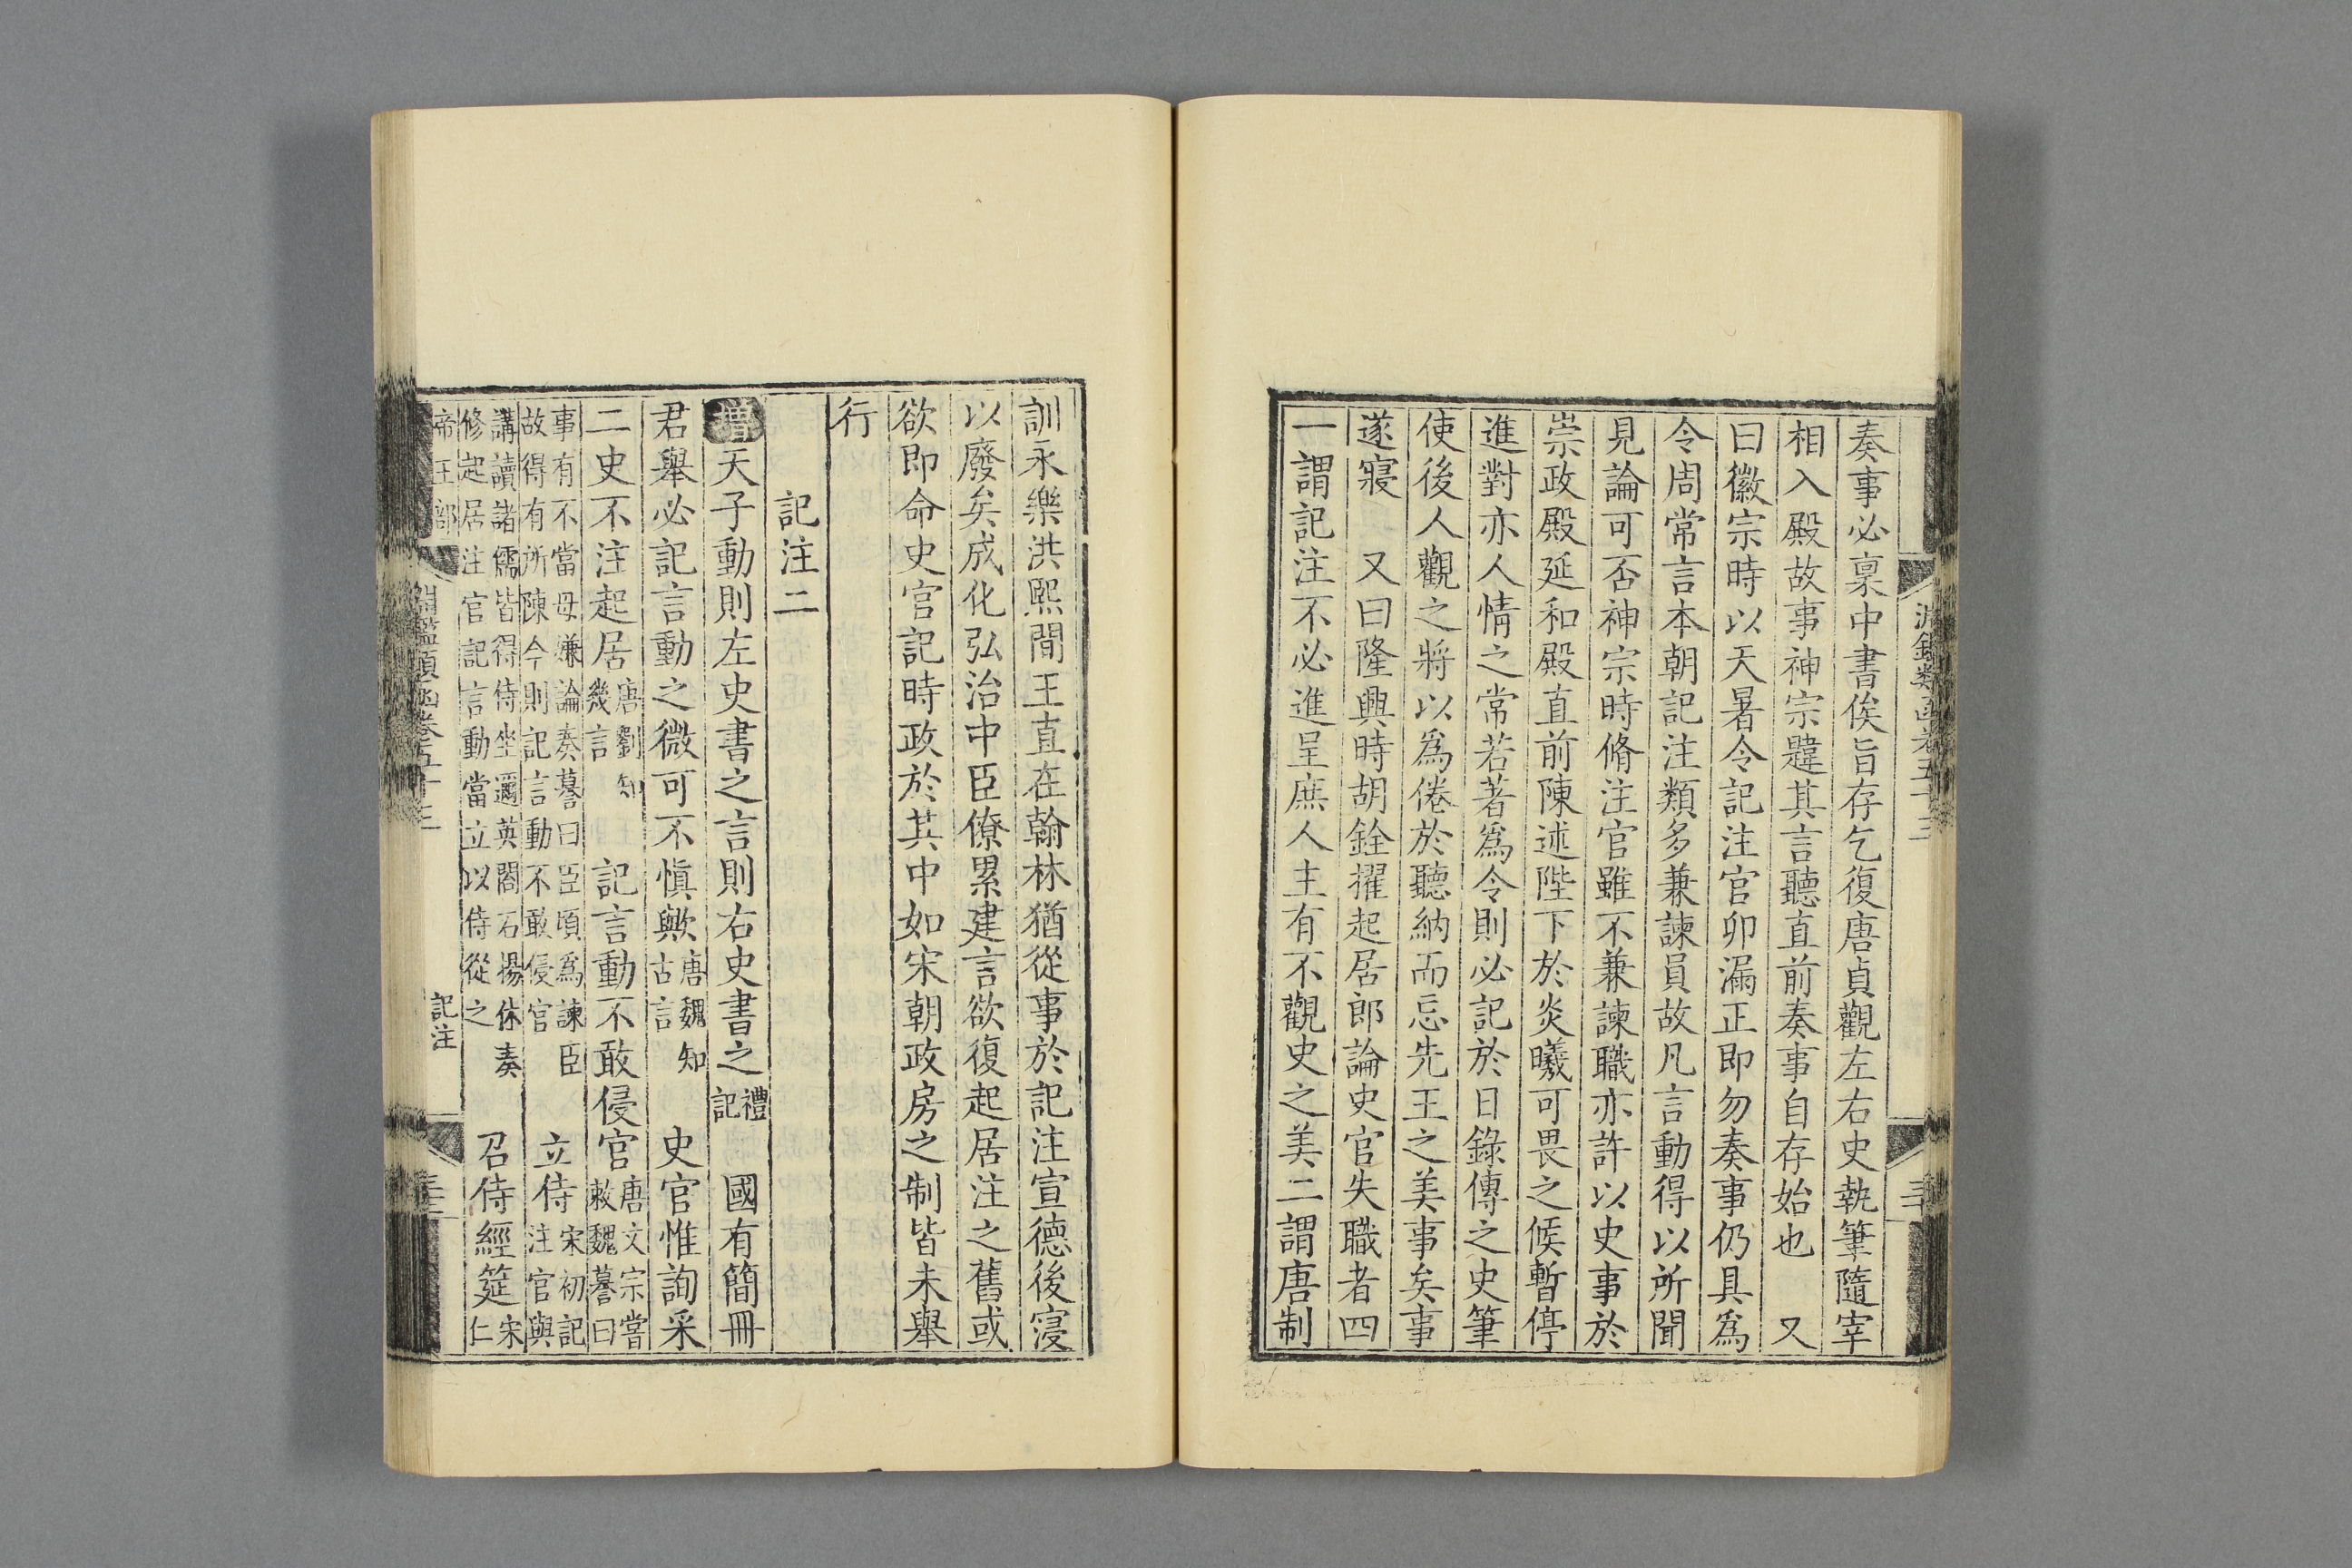 淵鑑類函卷五十三
奏事必稟中書俟旨存乞復唐貞觀左右史執筆隨宰
相入殿故事神宗韙其言聽直前奏事自存始也　又
曰徽宗時以天暑令記注官卯漏正即勿奏事仍具爲
令周常言本朝記注類多兼諫員故凡言動得以所聞
見論可否神宗時脩注官雖不兼諫職亦許以史事於
崇政殿延和殿直前陳述陛下於炎曦可畏之候暫停
進對亦人情之常若著爲令則必記於日錄傳之史筆
使後人觀之將以爲倦於聽納而忘先王之美事矣事
遂寢　又曰隆興時胡銓擢起居郎論史官失職者四
一謂記注不必進呈庶人主有不觀史之美二謂唐制
訓永樂洪熙間王直在翰林猶從事於記注宣德後寖
以廢矣成化弘治中臣僚累建言欲復起居注之舊或
欲即命史官記時政於其中如宋朝政房之制皆未舉
行
記注二
增天子動則左史書之言則右史書之禮記　國有簡冊
君舉必記言動之微可不慎歟唐魏知古言　史官惟詢采
二史不注起居唐劉知幾言　記言動不敢侵官唐文宗嘗敕魏謩曰
事有不當毋嫌論奏謩曰臣頃爲諫臣
故得有所陳今則記言動不敢侵官　立侍宋初記注官與
講讀諸儒皆得侍坐邇英閣石揚休奏
修起居注官記言動當立以侍從之　召侍經筵宋仁
帝王部
記注
淵鑑類函卷五十三